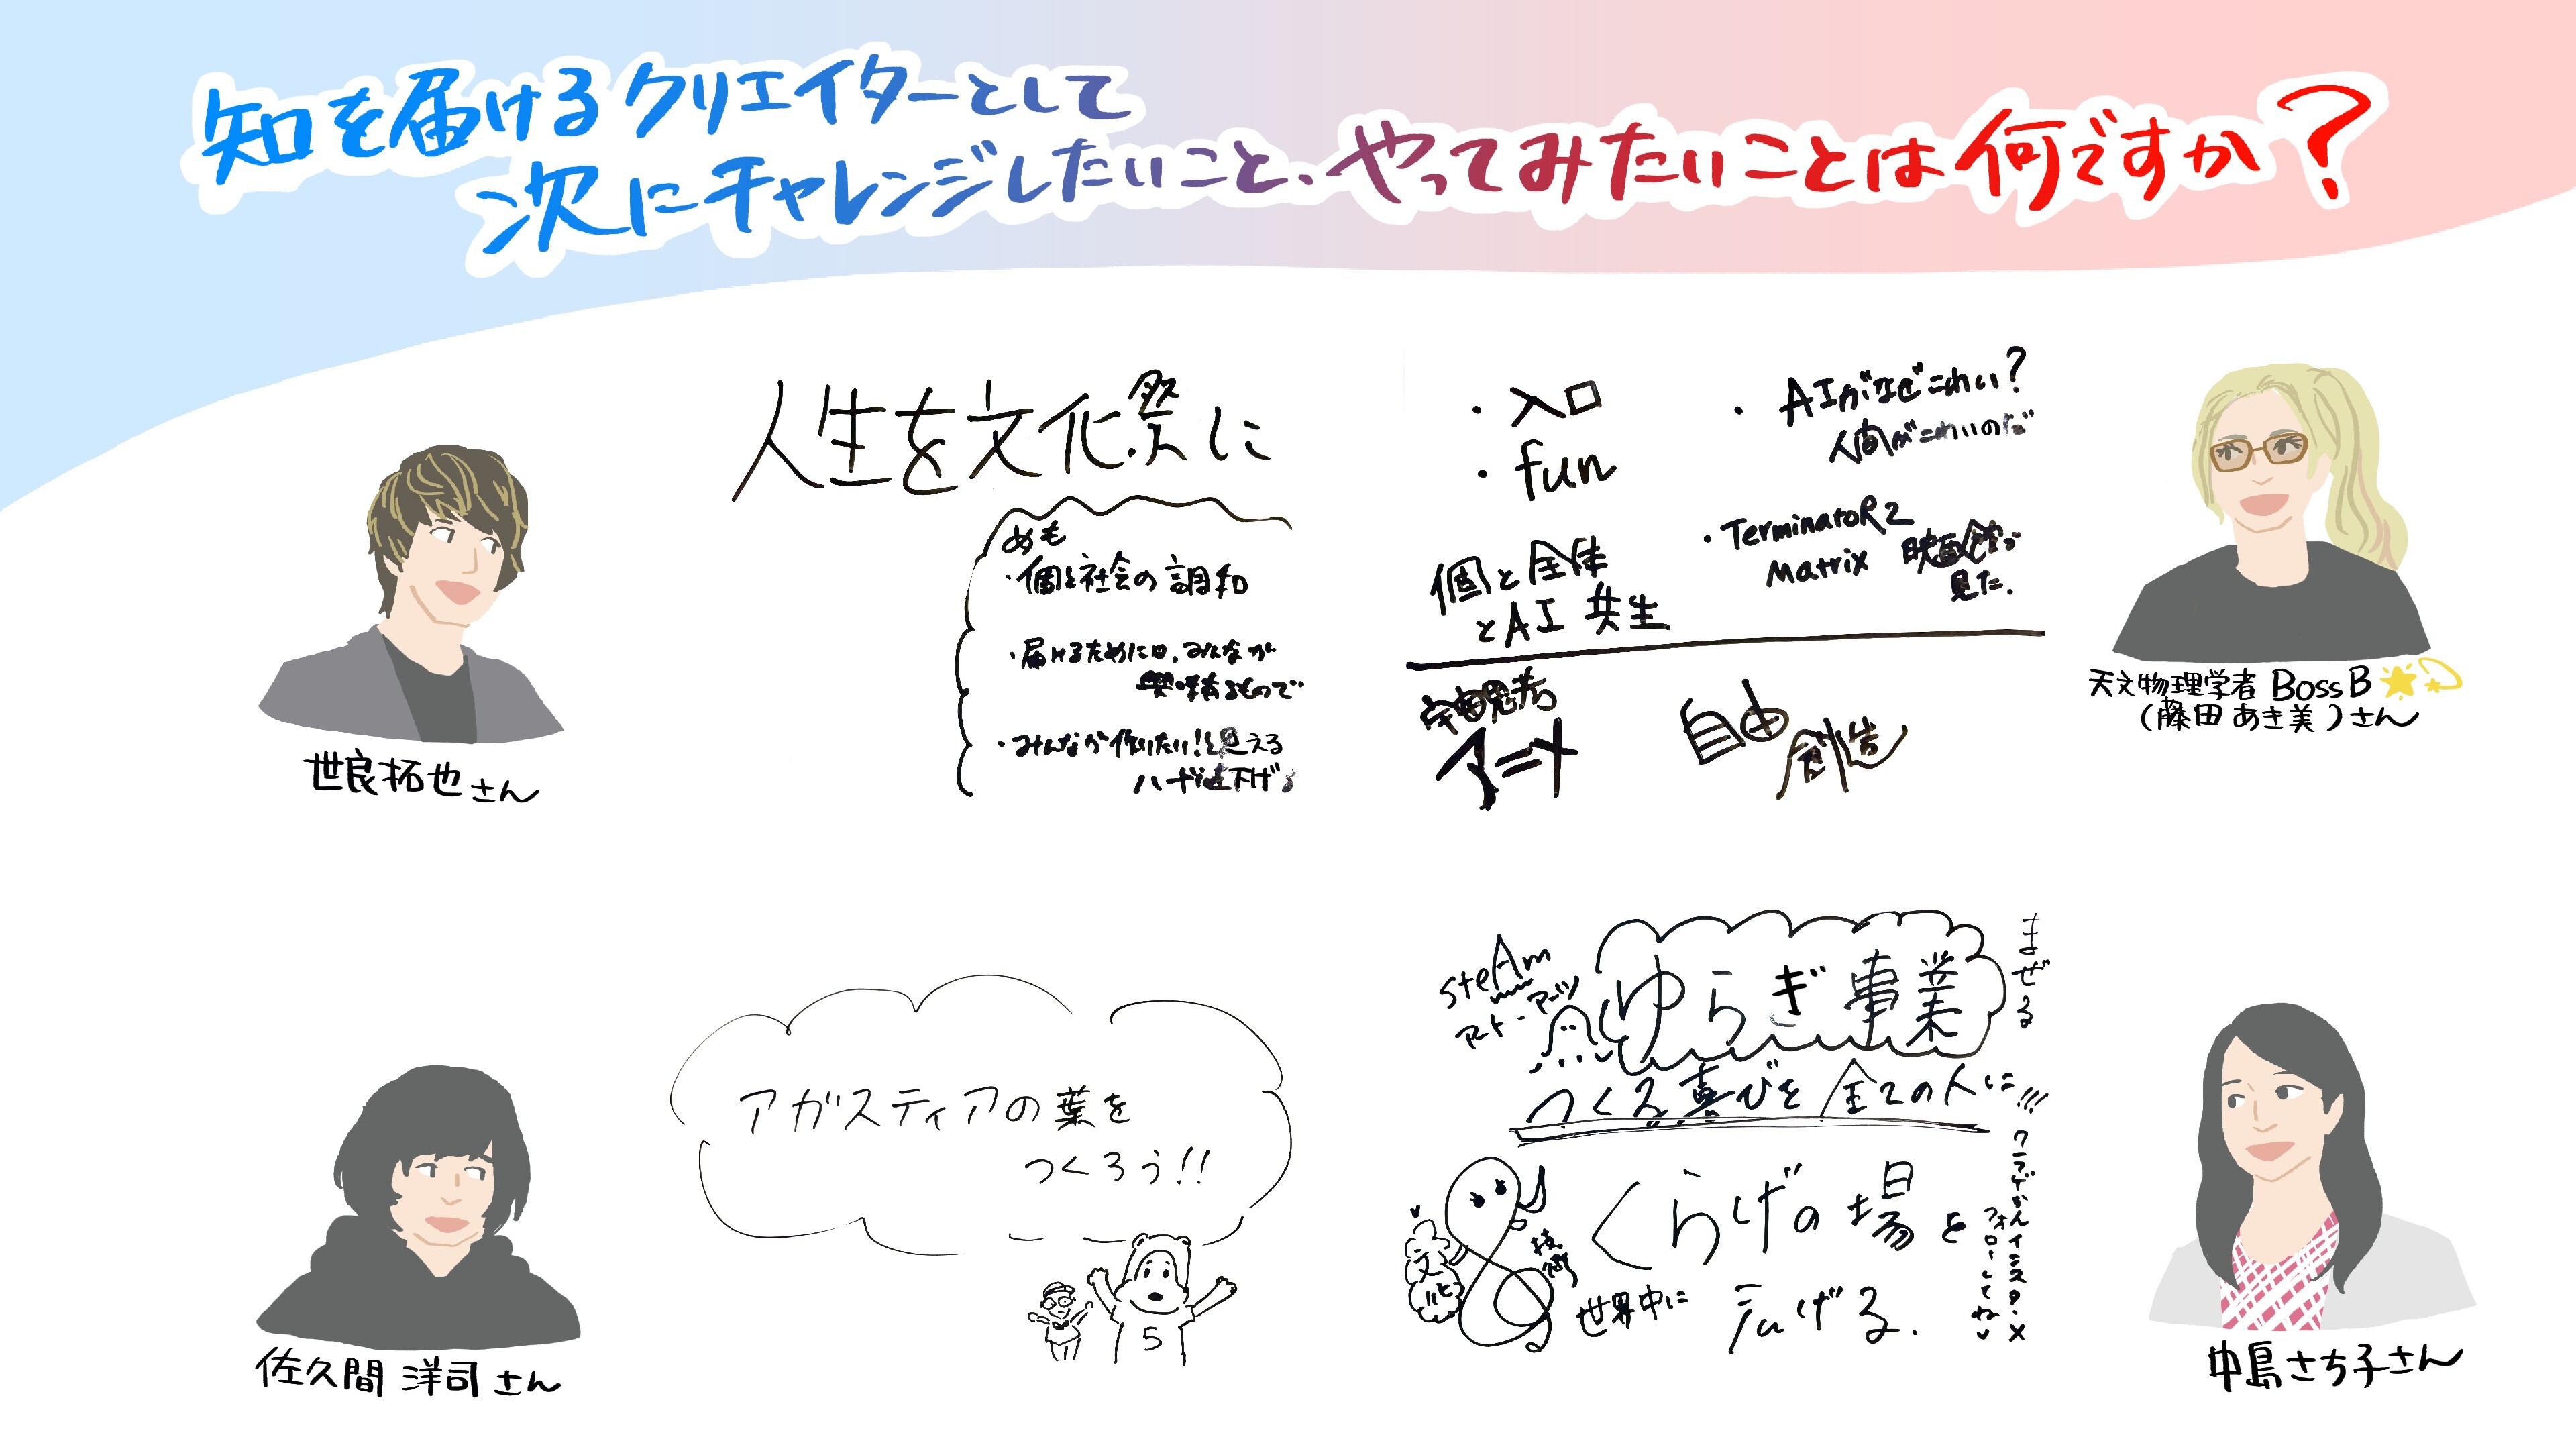 知を届けるクリエイターとして
次にチャレンジしたいこと、やってみたいことは何ですか?
世良拓也さん
人生を文化祭に
めも
・個と社会の調和
・届けるためには、みんなが
興味あるもので
・みんなが作りたい!と思える
ハードル下げる
・入口
・fun
個と全体
とAI 共生
・AIがなぜこわい?
人間がこわいのだ
・TerminatoR2
Matrix 映画館で
見た.
宇宙思考
自由
創造
天文物理学者 BossB
(藤田 あき美)さん
佐久間 洋司さん
アガスティアの葉を
つくろう!!
5
steAm
アート・アーツ
ゆらぎ事業
まぜる
つくる喜びを 全ての人に!!!
くらげの場を
世界中に 広げる.
文化
技術
クラゲかんインスタ・X
フォローしてね
中島さち子さん